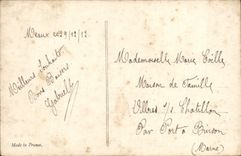 Meaux ce 29/12/12
Meilleurs Souhaits
Bons Baisers
Gabrielle
Mademoiselle Marie
Maison de Famille
Villers s/s Chatillon
Par Port à Binson
(Marne)
Made in France.